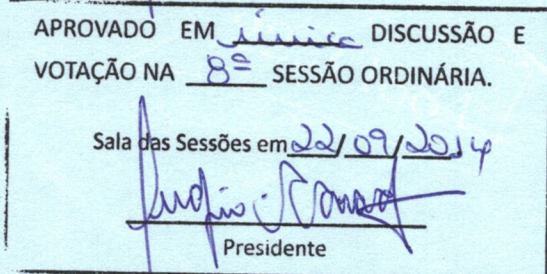 APROVADO EM única DISCUSSÃO E
VOTAÇÃO NA 8ª SESSÃO ORDINÁRIA.
Sala das Sessões em 22/09/2014
Presidente